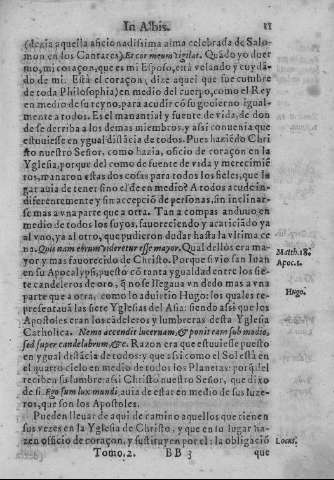 In Albis. 11
(dezia aquella aficionadissima alma celebrada de Salo-
mon en los Cantares) Et cor meum vigilat. Quãdo yo duer
mo, mi coraçon, que es mi Esposo, està velando y cuyda-
do de mi. Està el coraçon, dize aquel que fue cumbre
de toda Philosophia) en medio del cuerpo, como el Rey
en medio de su reyno, para acudir cõ su gouierno igual-
mente a todos. Es el manantial y fuente de vida, de don
de se deriba a los demas miembros, y assi conuenia que
estuuiesse en ygual distãcia de todos. Pues haziẽdo Chri
sto nuestro Señor, como hazia, oficio de coraçon en la
Yglesia, porque del como de fuente de vida y merecimiẽ
tos, manaron estas dos cosas para todos los fieles, que lu
gar auia de tener sino el de en medio? A todos acude in-
diferentemente y sin accepciõ de personas, sin inclinar-
se mas a vna parte que a otra. Tan a compas anduuo en
medio de todos los suyos, fauoreciendo y acariciãdo ya
al vno, ya al otro, que pudieron dudar hasta la vltima ce
na. Quis eorum videretur esse maior. Qual dellos era ma-
yor y mas fauorecido de Christo. Porque si vio san Iuan
en su Apocalyps, puesto cõ tanta ygualdad entre los sie
te candeleros de oro, q̃ no se llegaua vn dedo mas a vna
parte que a otra, como lo aduirtio Hugo: los quales re-
presentauã las siete Yglesias del Asia: siendo assi que los
Apostoles eran los cãdeleros y lumbreras desta Yglesia
Catholica. Nemo accendit lucernam, & ponit eam sub modio,
sed super candelabrum, &c. Razon era que estuuiesse puesto
en ygual distãcia de todos: y que assi como el Sol està en
el quarto cielo en medio de todos los Planetas: porq̃ del
reciben su lumbre: assi Christo nuestro Señor, que dixo
de si. Ego sum lux mundi, auia de estar en medio de sus luze-
ros, que son los Apostoles.
Pueden lleuar de aqui de camino aquellos que tienen
sus vezes en la Yglesia de Christo, y que en su lugar ha-
zen officio de coraçon, y sustituyen por el: la obligaciõ
Tomo. 2. BB 3 que
Matth. 18.
Apoc. 1.
Hugo.